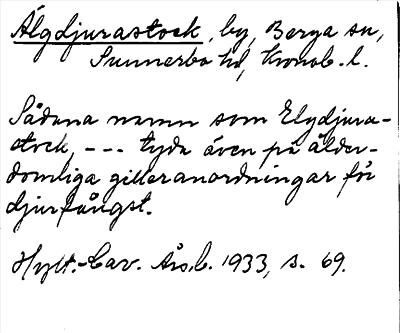 Älgdjurastock, by, Berga sn,
Sunnerbo hd, Kronob. l.
Sådana namn som Elgdjura-
stock, --- tyda även på ålder-
domliga gilleranordningar för
djurfångst.
Hylt.-Cav. Års.b. 1933, s. 69.